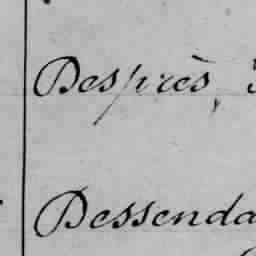 Desprès,
Dessenda